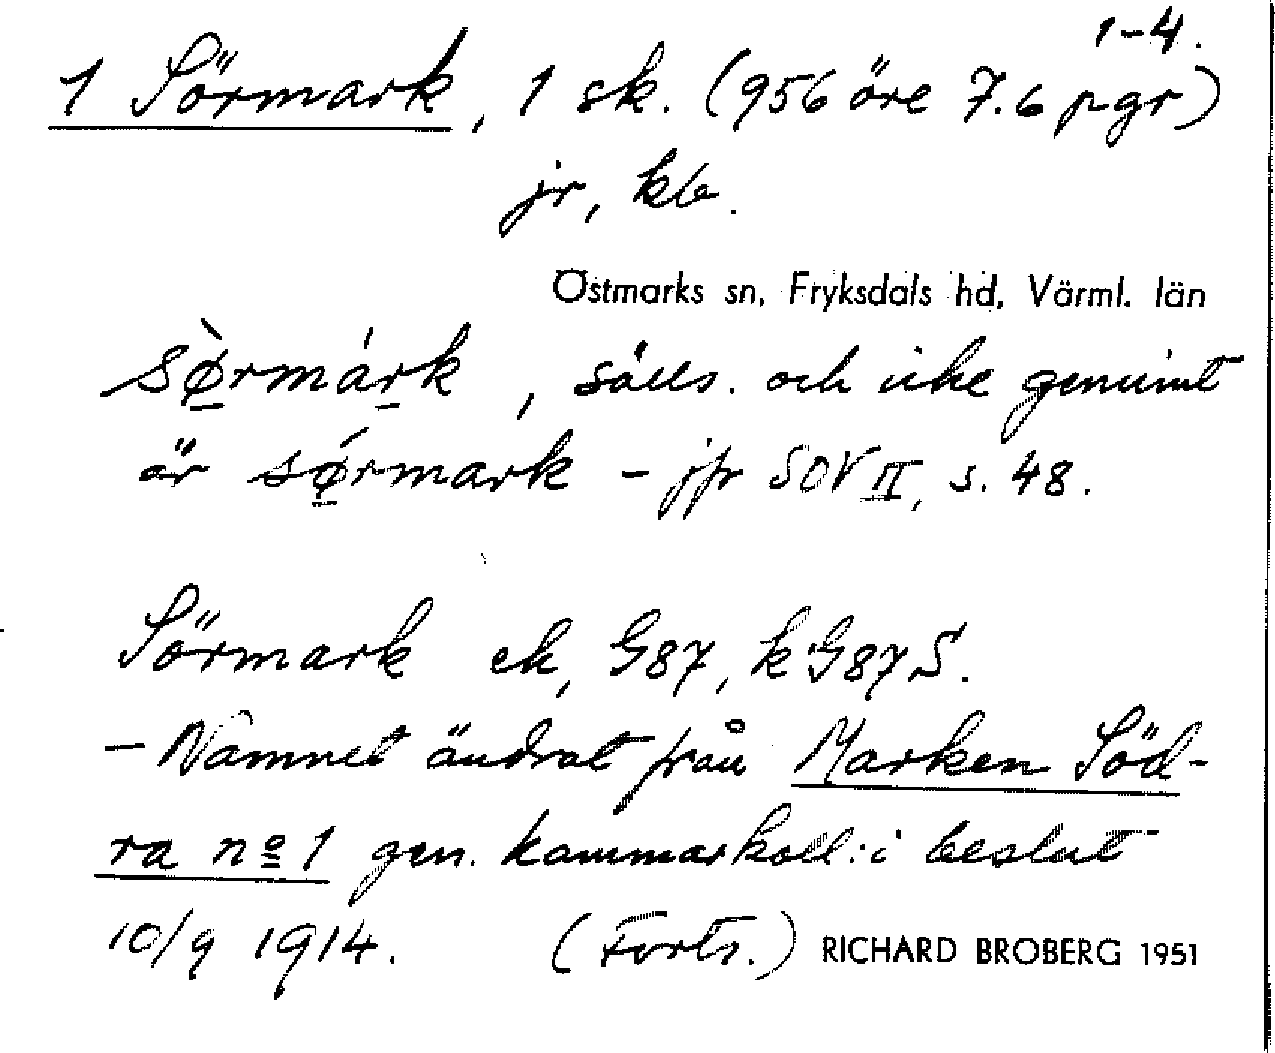 1-4.
1 Sörmark, 1 sk. (956 öre 7.6 pgr)
jr, kb.
Östmarks sn, Fryksdals hd, Värml. län
sø̀rmárk, sälls. och icke genuint
är sǿrmark - jfr SOV II, s. 48.
Sörmark ek, G87, kG87S.
- Namnet ändrat från Marken Söd-
ra nº 1 gen. kammarkoll:i beslut
10/9 1914. (Forts.) RICHARD BROBERG 1951